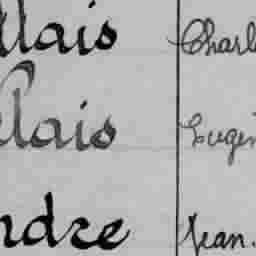 llais Charl
lais Eugén
ndre Jean.